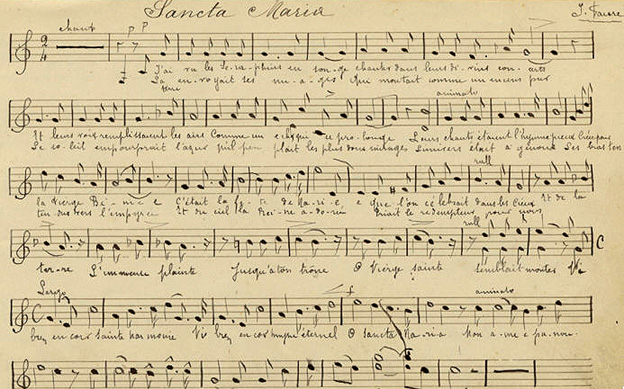 Sancta Maria J. Faure
chant p P
J'ai vu les Sé-ra-phins en son-ge chanter dans leurs di-vins con-certs
en-vo-yait ses nu-a-ges Qui montait comme un encens pur
animato
Et leurs voix remplissaient les airs Comme un écho qui se pro-longe Leurs chants étaient l'hymne pieux
Le so-leil empourprait l'azur plus doux L'univers était à genoux Les bras
rall
la vierge Bé-ni-e C'était la fê-te de Ma-ri-e, e Que l'on célébrait dans les cieux Et de la
ten-dus vers l'empyrée Et du ciel la Rei-ne a-do-ré-e Priait le rédempteur pour nous
rall
ter-re L'immense plainte Jusqu'à ton trône O Vierge sainte semblait monter Vi
Largo f animato
brez encor sainte harmonie Vi brez encor hymne éternel O sancta Ma-ri-a Mon a-me é-pa-nou-